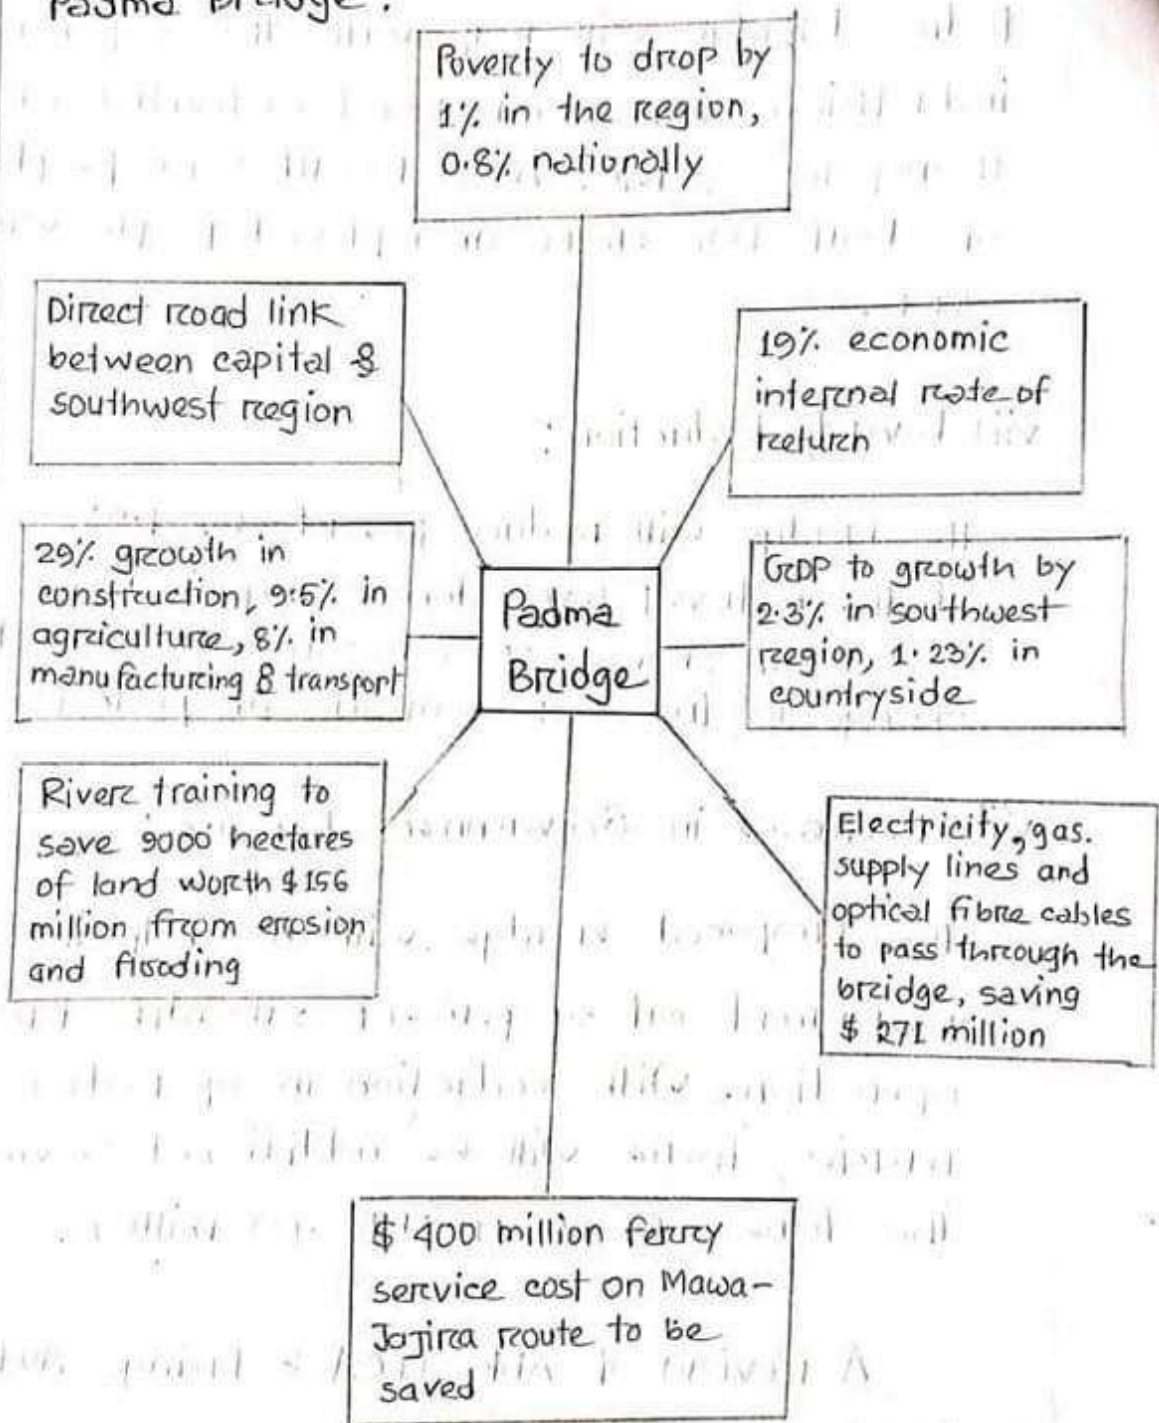 Padma Bridge.
Poverty to drop by
1% in the region,
0.8% nationally
Direct road link
between capital &
southwest region
19% economic
internal rate of
return
29% growth in
construction, 9.5% in
agriculture, 8% in
manufacturing & transport
Padma
Bridge
GDP to growth by
2.3% in southwest
region, 1.23% in
countryside
River training to
save 9000 hectares
of land worth $156
million from erosion
and flooding
Electricity, gas.
supply lines and
optical fibre cables
to pass through the
bridge, saving
$ 271 million
$ 400 million ferry
service cost on Mawa-
Jajira route to be
saved